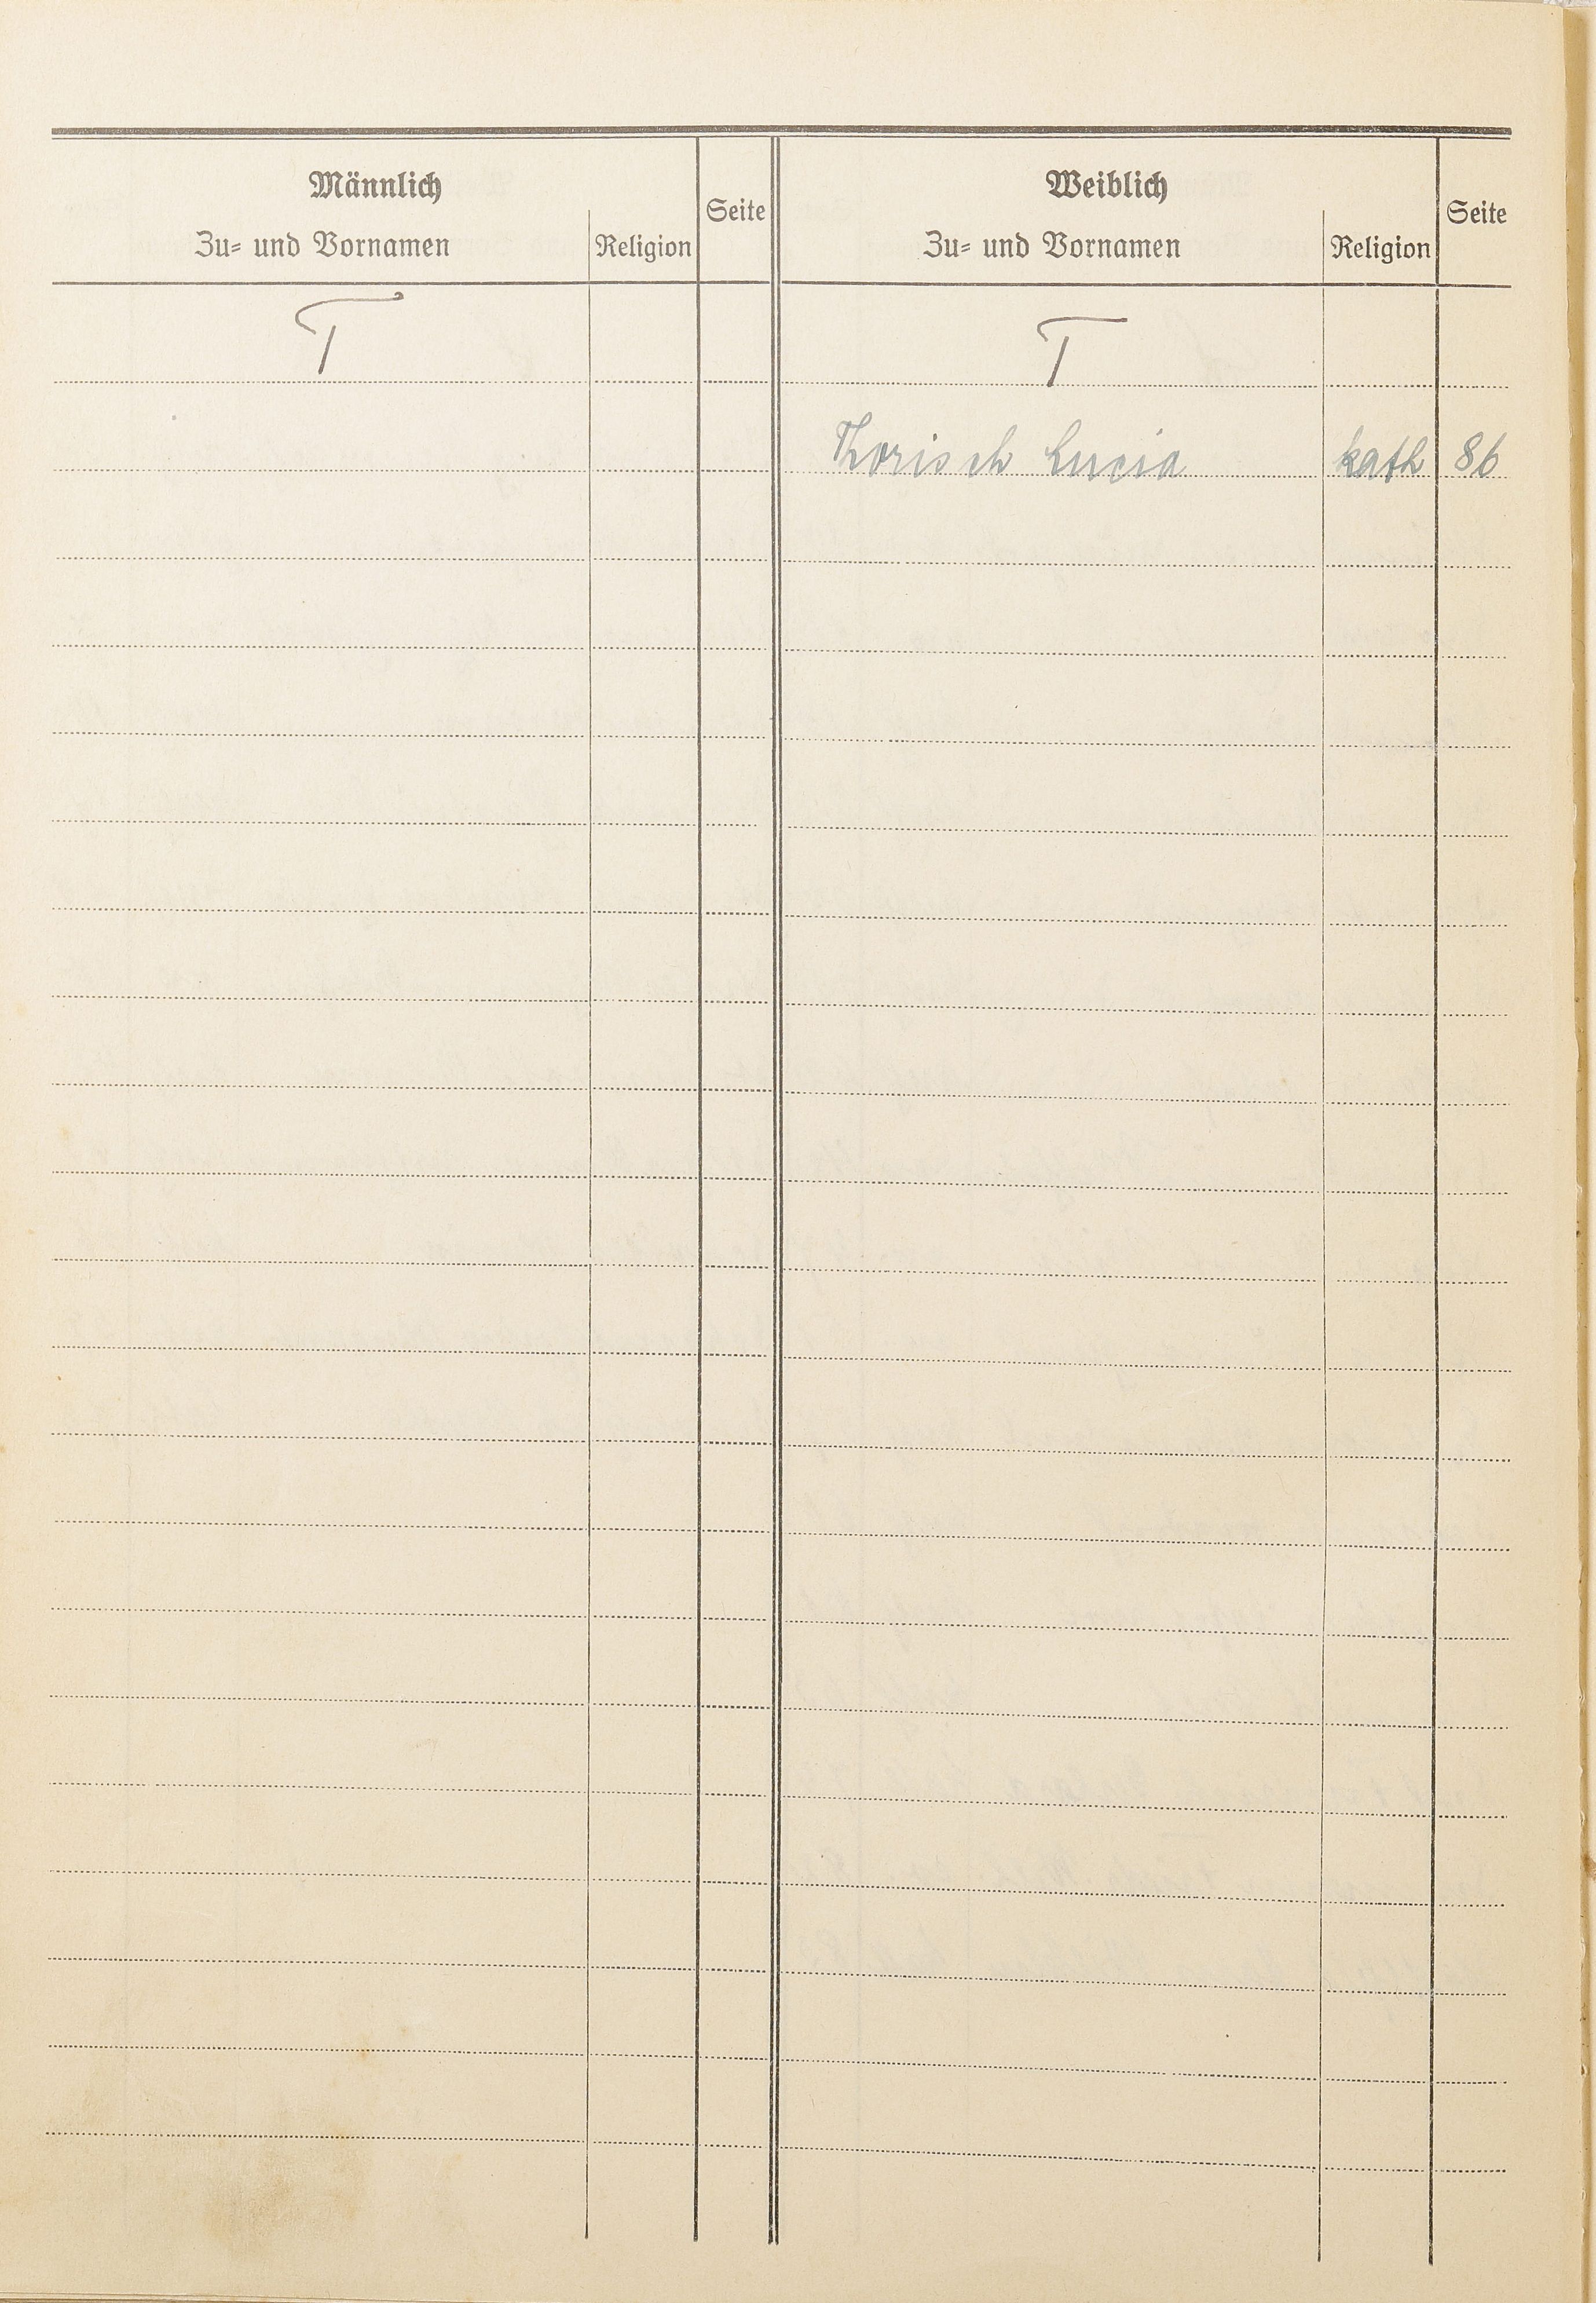 Männlich
Zu= und Vornamen
Religion
Seite
T
Weiblich
Zu= und Vornamen
Religion
Seite
T
Thorisch Lucia kath 86